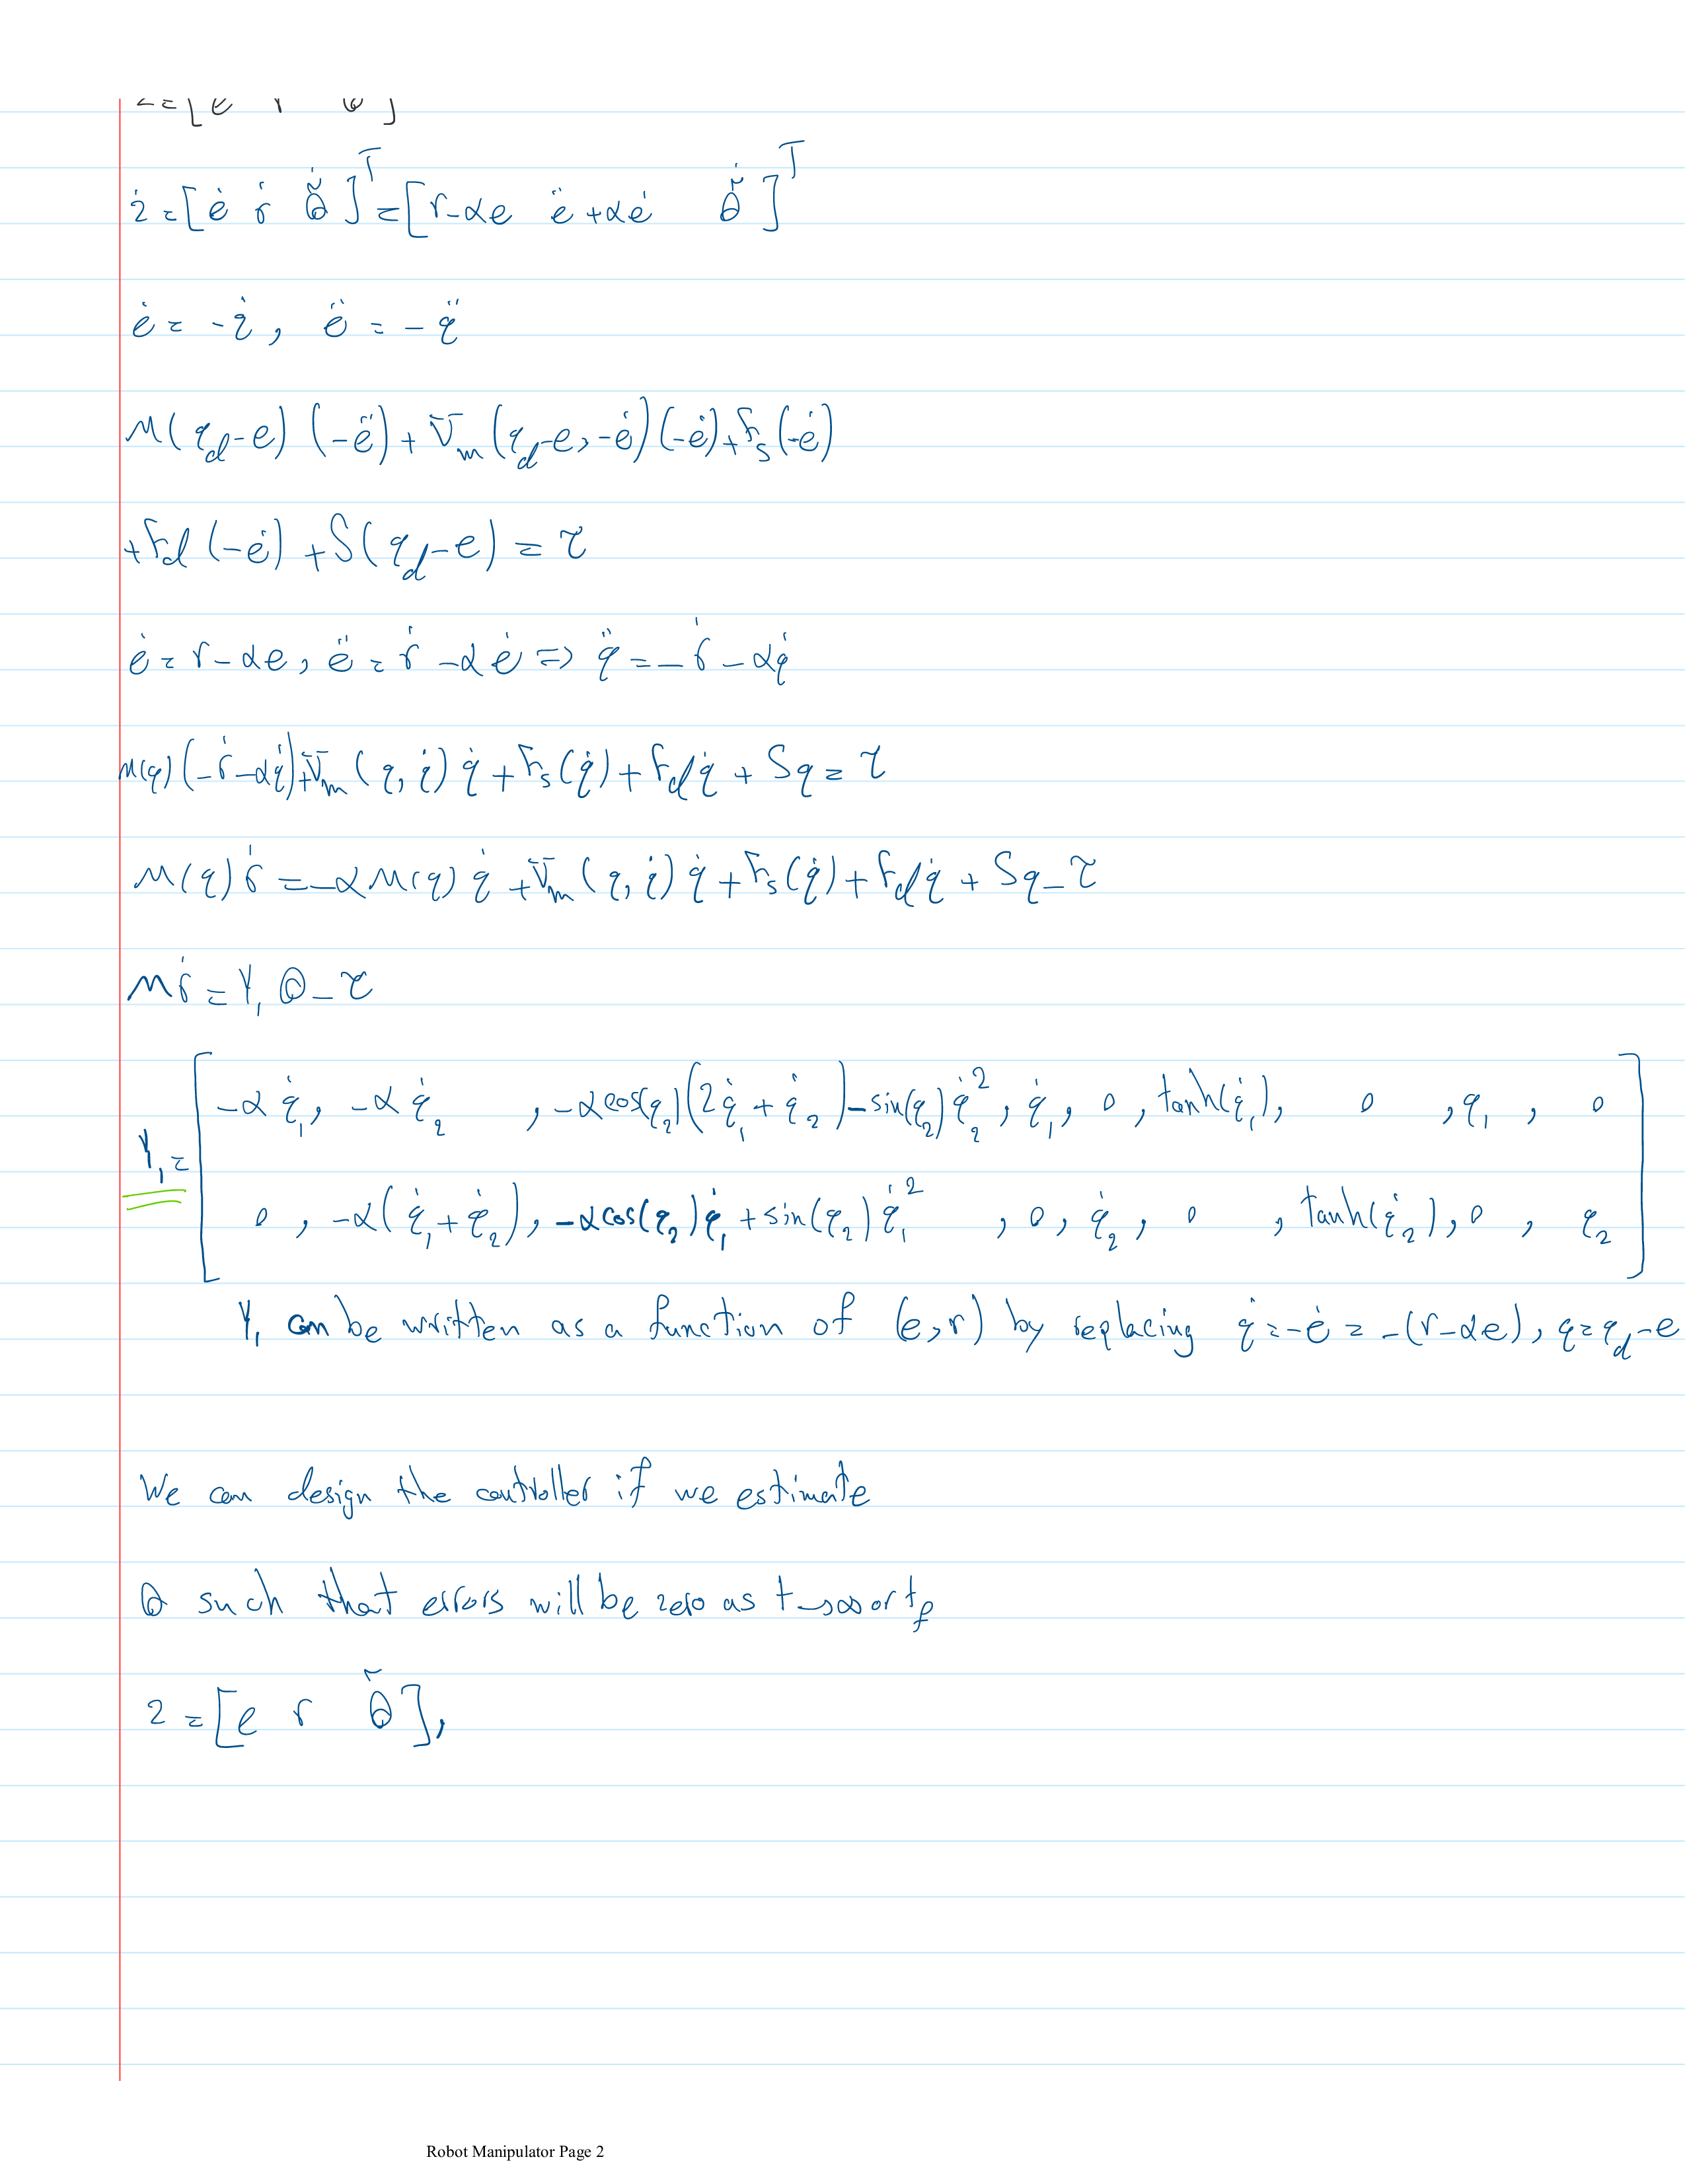 z=[e r θ̃]
ż=[ė ṙ θ̃̇]ᵀ=[r-αe ë+αė θ̃̇]ᵀ
ė = -q̇, ë = -q̈
M(q_d-e)(-ë)+V_m(q_d-e,-ė)(-ė)+F_s(-ė)
+F_d(-ė)+S(q_d-e)=τ
ė=r-αe, ë=ṙ-αė => q̈=-ṙ-αq̇
M(q)(-ṙ-αq̇)+V_m(q,q̇)q̇+F_s(q̇)+F_dq̇+Sq=τ
M(q)ṙ=-αM(q)q̇+V_m(q,q̇)q̇+F_s(q̇)+F_dq̇+Sq-τ
Mṙ=Y₁θ-τ
-αq̇₁, -αq̇₂, -αcos(q₂)(2q̇₁+q̇₂)-sin(q₂)q̇₂², q̇₁, 0, tanh(q̇₁), 0, q₁, 0
Y₁=
0, -α(q̇₁+q̇₂), -αcos(q₂)q̇₁+sin(q₂)q̇₁², 0, q̇₂, 0, tanh(q̇₂), 0, q₂
Y₁ can be written as a function of (e,r) by replacing q̇=-ė=-(r-αe), q=q_d-e
We can design the controller if we estimate
θ such that errors will be zero as t→∞ or t_f
z=[e r θ̃],
Robot Manipulator Page 2